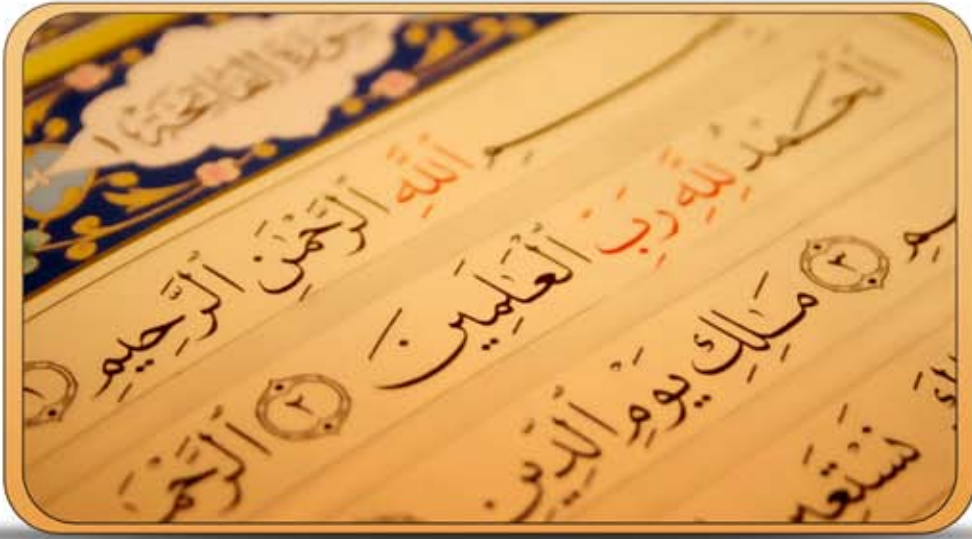 سُورَةُ الفَاتِحَةِ ١
بِسْمِ ٱللَّهِ ٱلرَّحْمَٰنِ ٱلرَّحِيمِ ١
ٱلْحَمْدُ لِلَّهِ رَبِّ ٱلْعَٰلَمِينَ ٢ ٱلرَّحْمَ
ـيمِ ٣ مَٰلِكِ يَوْمِ ٱلدِّينِ
نَسْتَعِيـ